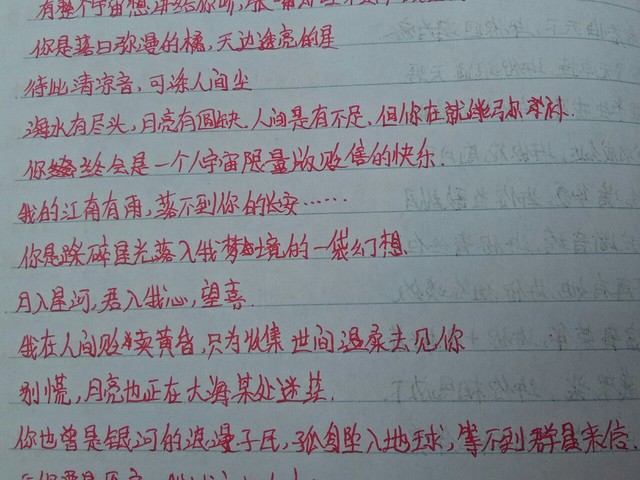 有整个宇宙想讲给你听,张
你是落日弥漫的橘,天边透亮的星
待此清凉音,可涤人间尘
海水有尽头,月亮有圆缺.人间是有不足,但你在就能弥
你终会是一个/宇宙限量版贩售的快乐.
我的江南有雨,落不到你的长安……
你是踩碎星光落入我梦境的一袋幻想.
月入星河,君入我心,望喜.
我在人间贩卖黄昏,只为收集世间温柔去见你
别慌,月亮也正在大海某处迷茫.
你也曾是银河的浪漫子民,孤身坠入地球,等不到群星来信.